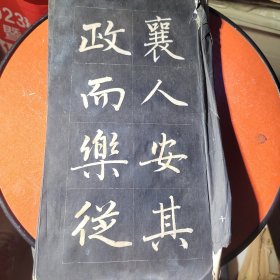 襄人安其
政而樂從